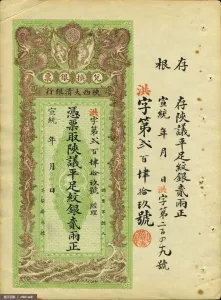 兌換銀票
陝西大清銀行
洪字第貳百肆拾玖號
憑票取陝議平足紋銀貳兩正
宣統 年 月 日
存根
存陝議平足紋銀貳兩正
宣統 年 月 日 洪字第二百四十九號
洪字第貳百肆拾玖號